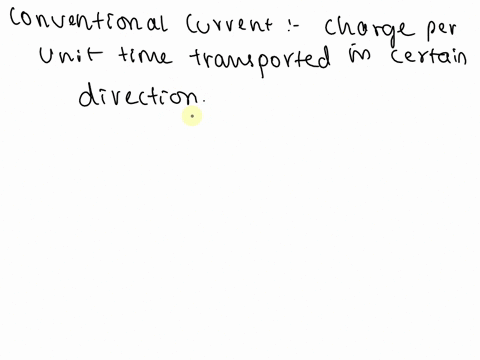 Conventional Current :- charge per
unit time transported in certain
direction.